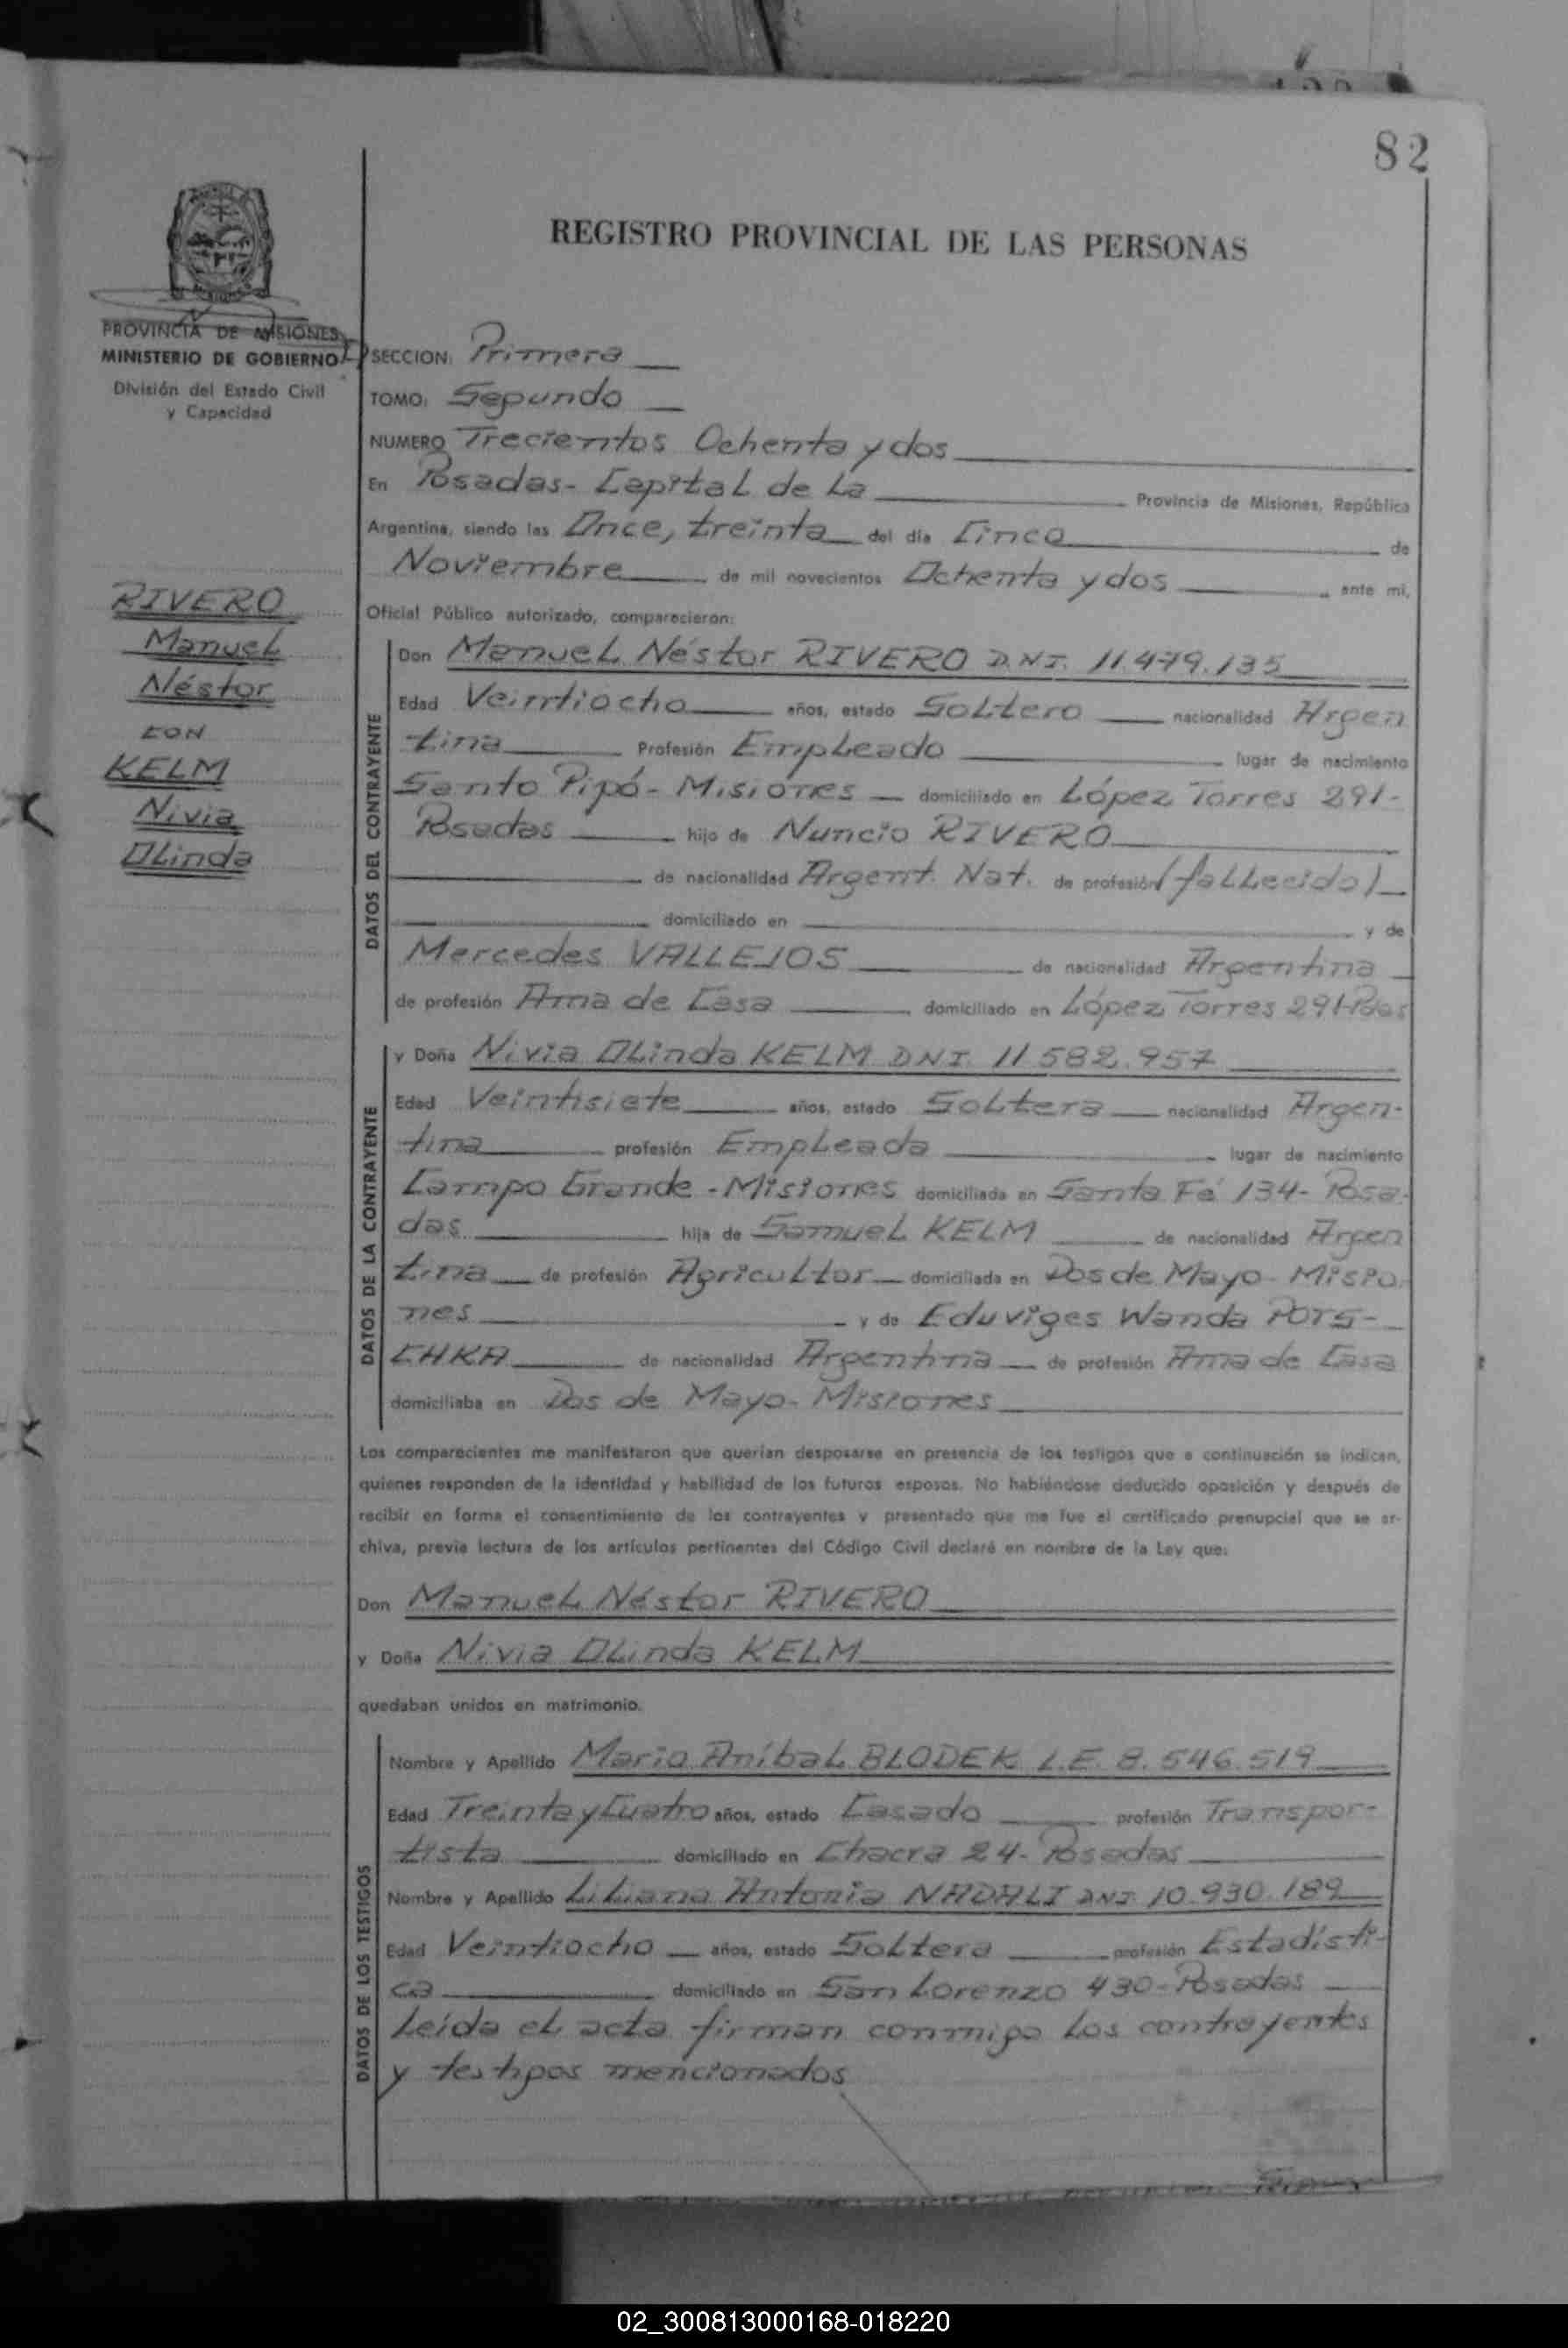 82
REGISTRO PROVINCIAL DE LAS PERSONAS
PROVINCIA DE MISIONES
MINISTERIO DE GOBIERNO
División del Estado Civil
y Capacidad
RIVERO
Manuel
Néstor
CON
KELM
Nivia
Olinda
SECCION: Primera
TOMO: Segundo
NUMERO Trecientos Ochenta y dos
En Posadas - Capital de La Provincia de Misiones, República
Argentina, siendo las Once, treinta del día Cinco de
Noviembre de mil novecientos Ochenta y dos ante mí,
Oficial Público autorizado, comparecieron:
DATOS DEL CONTRAYENTE
Don Manuel Néstor RIVERO D.N.I. 11.479.135
Edad Veintiocho años, estado Soltero nacionalidad Argen
tina Profesión Empleado lugar de nacimiento
Santo Pipó - Misiones domiciliado en López Torres 291-
Posadas hijo de Nuncio RIVERO
de nacionalidad Argent. Nat. de profesión (fallecido)
domiciliado en y de
Mercedes VALLEJOS de nacionalidad Argentina
de profesión Ama de Casa domiciliado en López Torres 291-Pdas
DATOS DE LA CONTRAYENTE
y Doña Nivia Olinda KELM DNI. 11.582.957
Edad Veintisiete años, estado Soltera nacionalidad Argen-
tina profesión Empleada lugar de nacimiento
Campo Grande - Misiones domiciliada en Santa Fé 134- Posa-
das hija de Samuel KELM de nacionalidad Argen
tina de profesión Agricultor domiciliada en Dos de Mayo - Misio
nes y de Eduviges Wanda POTS-
CHKA de nacionalidad Argentina de profesión Ama de Casa
domiciliaba en Dos de Mayo - Misiones
Los comparecientes me manifestaron que querían desposarse en presencia de los testigos que a continuación se indican,
quienes responden de la identidad y habilidad de los futuros esposos. No habiéndose deducido oposición y después de
recibir en forma el consentimiento de los contrayentes y presentado que me fue el certificado prenupcial que se ar-
chiva, previa lectura de los artículos pertinentes del Código Civil declaré en nombre de la Ley que:
Don Manuel Néstor RIVERO
y Doña Nivia Olinda KELM
quedaban unidos en matrimonio.
DATOS DE LOS TESTIGOS
Nombre y Apellido Mario Aníbal BLODEK L.E. 8.546.519
Edad Treinta y Cuatro años, estado Casado profesión Transpor-
tista domiciliado en Chacra 24- Posadas
Nombre y Apellido Liliana Antonia NADALI DNI 10.930.189
Edad Veintiocho años, estado Soltera profesión Estadísti-
ca domiciliado en San Lorenzo 430-Posadas
Leída el acta firman conmigo los contrayentes
y testigos mencionados
02_300813000168-018220